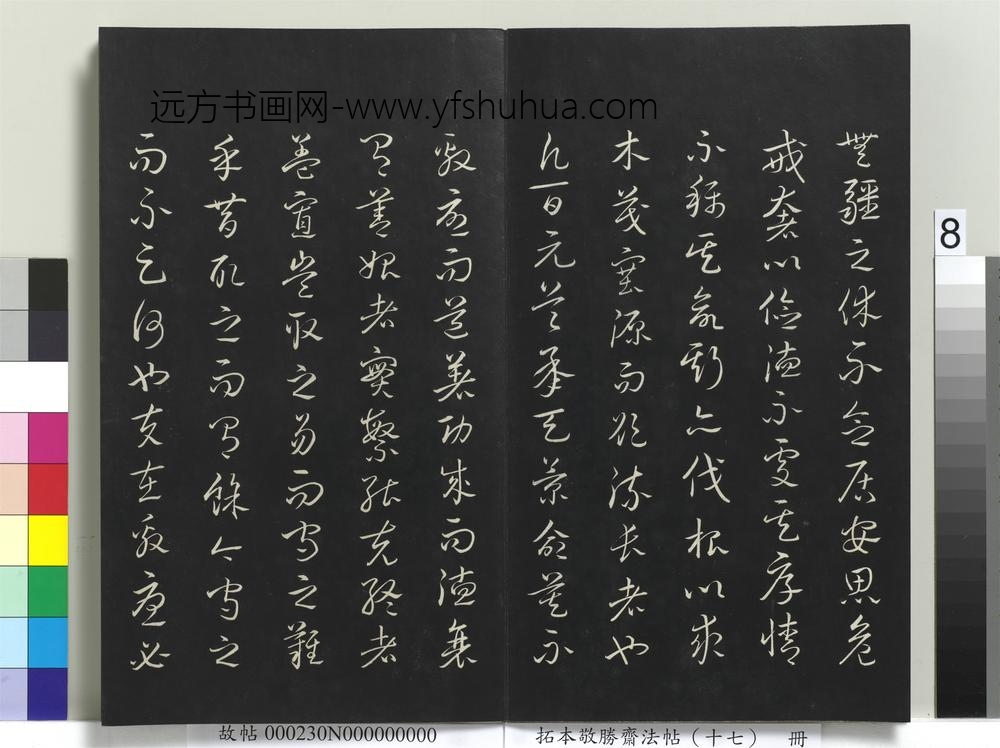 远方书画网-www.yfshuhua.com
無疆之休不念居安思危
戒奢以儉德不處其厚情
不勝其欲斯亦伐根以求
木茂塞源而欲流長者也
凡百元首承天景命莫不
殷憂而道著功成而德衰
有善始者實繁能克終者
蓋寡豈取之易而守之難
乎昔取之而有餘今守之
而不足何也夫在殷憂必
8
故帖 000230N000000000
拓本敬勝齋法帖（十七） 冊